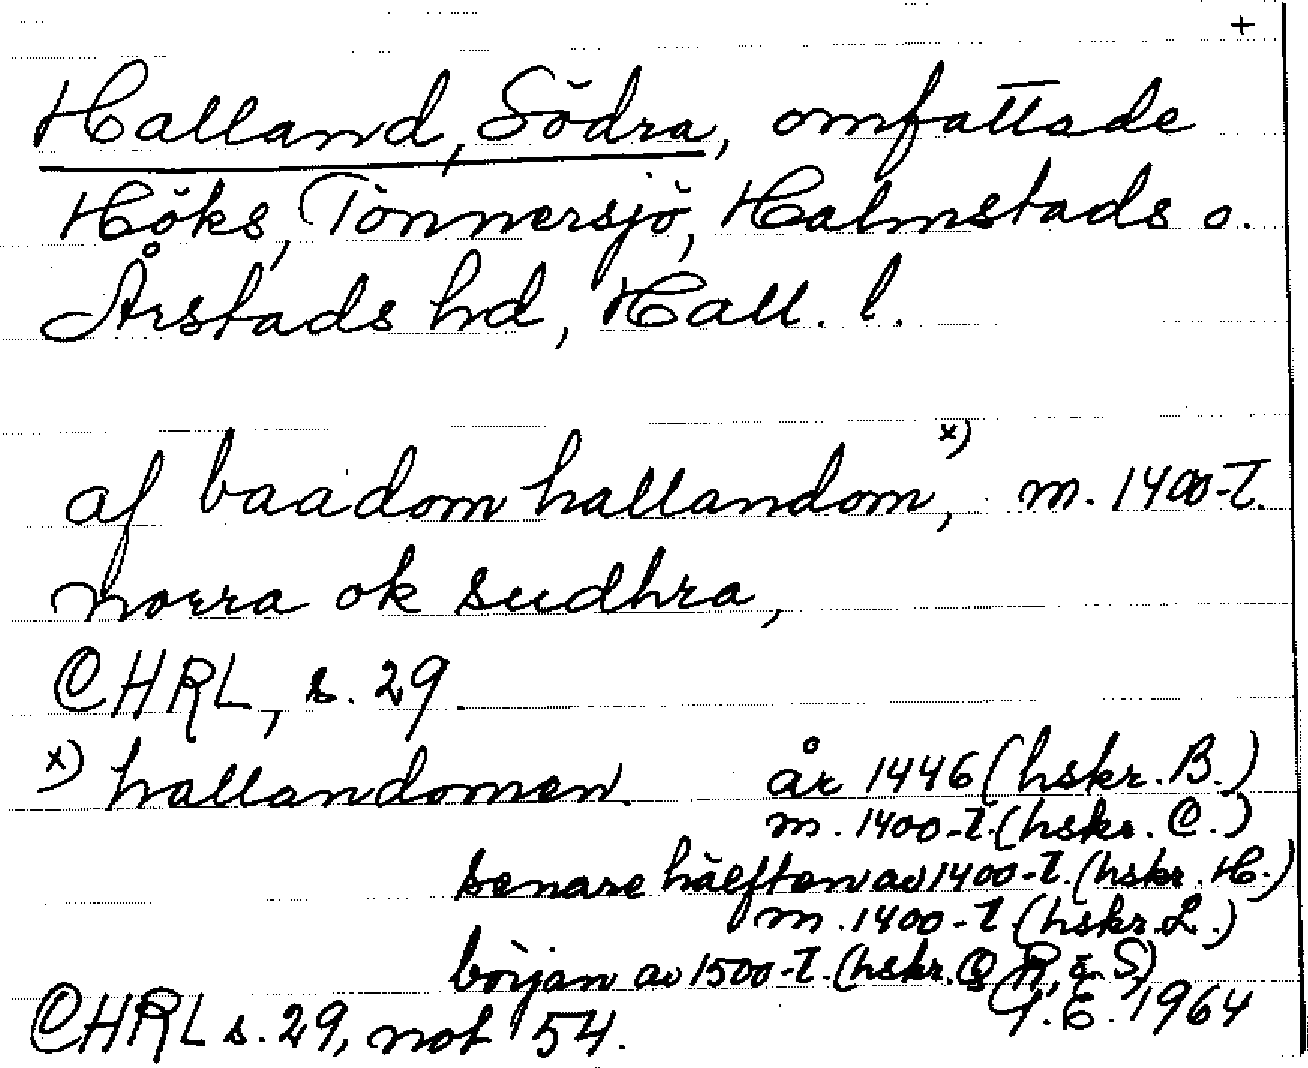 +
Halland, Södra, omfattade
Höks, Tönnersjö, Halmstads o.
Årstads hd, Hall. l.
af baadom hallandom, x) m. 1400-t.
norra ok sudhra,
CHRL, s. 29
x) hallandomen. år 1446 (hskr. B.)
m. 1400-t. (hskr. C.)
senare hälften av 1400-t. (hskr. H.)
m. 1400-t (hskr. L.)
början av 1500-t. (hskr. Q R, & S)
CHRL s. 29, not 54. G.E. 1964